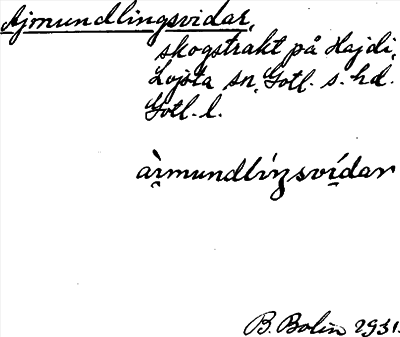 Ajmundlingsvidar,
skogstrakt på Hajdi,
Lojsta sn, Gotl. s. hd.
Gotl. l.
ài̯mundlíŋsvídar
B. Bolin 1931.